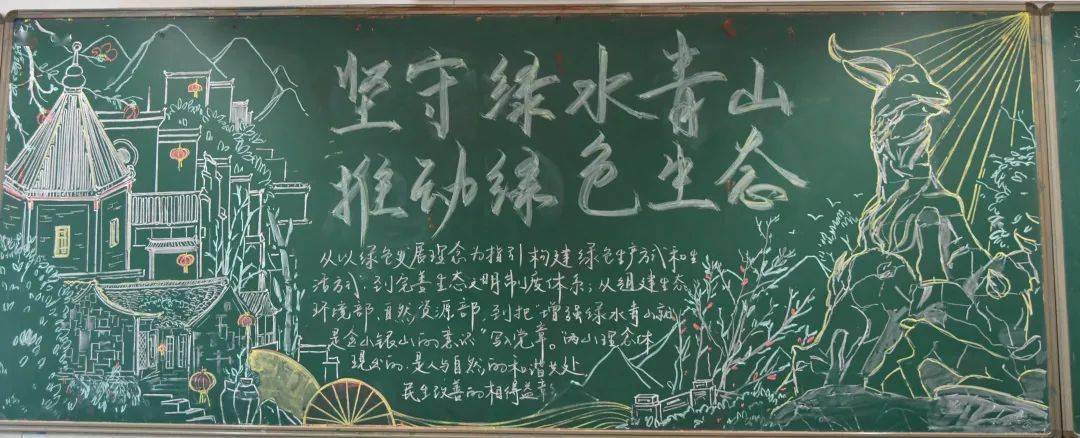 坚守绿水青山
推动绿色生态
从以绿色发展理念为指引构建绿色生产方式和生
活方式,到完善生态文明制度体系;从组建生态
环境部、自然资源部,到把“增强绿水青山就
是金山银山的意识”写党章。两山理念体
现出的,是人与自然的和谐共处
民生改善的相得益章